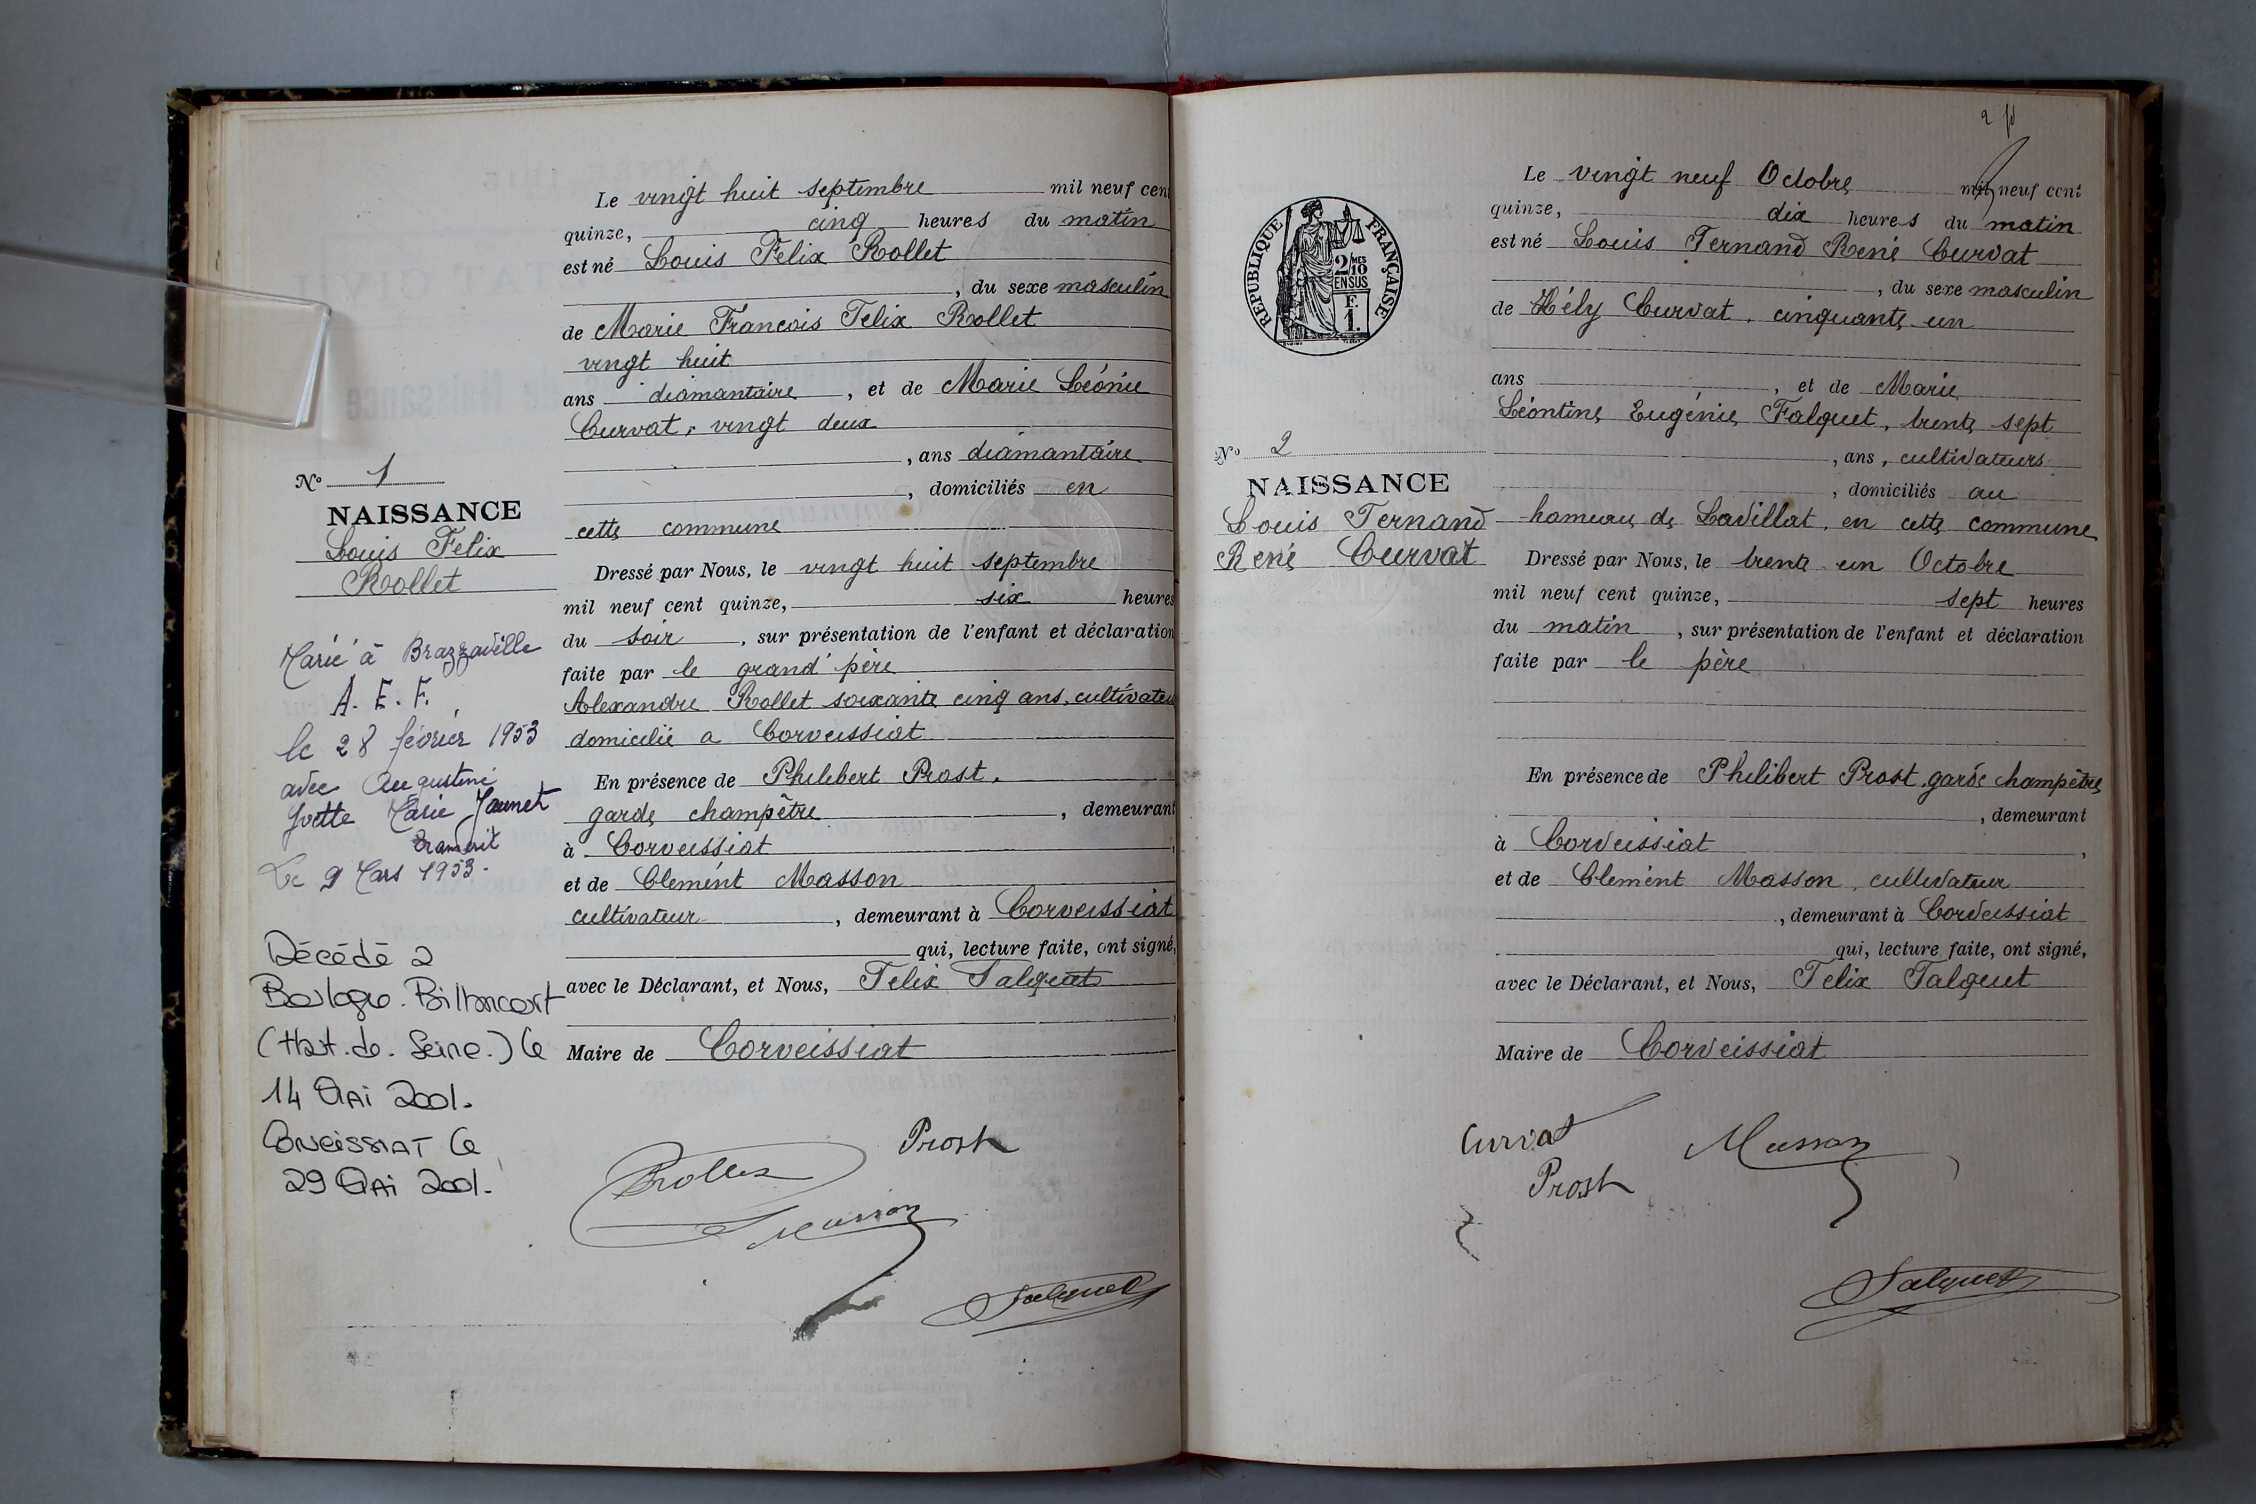 Le vingt huit septembre mil neuf cent
quinze, cinq heures du matin
est né Louis Félix Rollet
, du sexe masculin
de Marie François Félix Rollet
vingt huit
ans diamantaire, et de Marie Léonie
Curvat, vingt deux
, ans diamantaire
, domiciliés en
cette commune
Dressé par Nous, le vingt huit septembre
mil neuf cent quinze, six heures
du soir, sur présentation de l'enfant et déclaration
faite par le grand' père
Alexandre Rollet soixante cinq ans, cultivateur
domicilié a Corveissiat
En présence de Philibert Prost,
garde champêtre, demeurant
à Corveissiat,
et de Clemént Masson
cultivateur, demeurant à Corveissiat
qui, lecture faite, ont signé,
avec le Déclarant, et Nous, Felix Falquet
Maire de Corveissiat
Rollet
Prost
Masson
Falquet
No 1
NAISSANCE
Louis Félix
Rollet
Marié à Brazzaville
A. E. F.
le 28 février 1953
avec Augustine
Yvette Marie Jaunet
Le 9 Mars 1953.
Décédé à
Boulogne-Billancourt
(Haut.de.Seine.) le
14 Mai 2001.
CORVEISSIAT le
29 Mai 2001.
2
Le vingt neuf Octobre mil neuf cent
quinze, dix heures du matin
est né Louis Fernand René Curvat
, du sexe masculin
de Hély Curvat, cinquante un
ans, et de Marie
Léontine Eugénie Falquet, trente sept
, ans, cultivateurs
, domiciliés au
hameau de Lavillat, en cette commune
Dressé par Nous, le trente un Octobre
mil neuf cent quinze, sept heures
du matin, sur présentation de l'enfant et déclaration
faite par le père
En présence de Philibert Prost, garde champêtre
, demeurant
à Corveissiat,
et de Clemént Masson, cultivateur
, demeurant à Corveissiat
qui, lecture faite, ont signé,
avec le Déclarant, et Nous, Felix Falquet
Maire de Corveissiat
Curvat
Masson
Prost
Falquet
REPUBLIQUE FRANÇAISE
2/10 MES
EN SUS
F.
1.
No 2
NAISSANCE
Louis Fernand
René Curvat